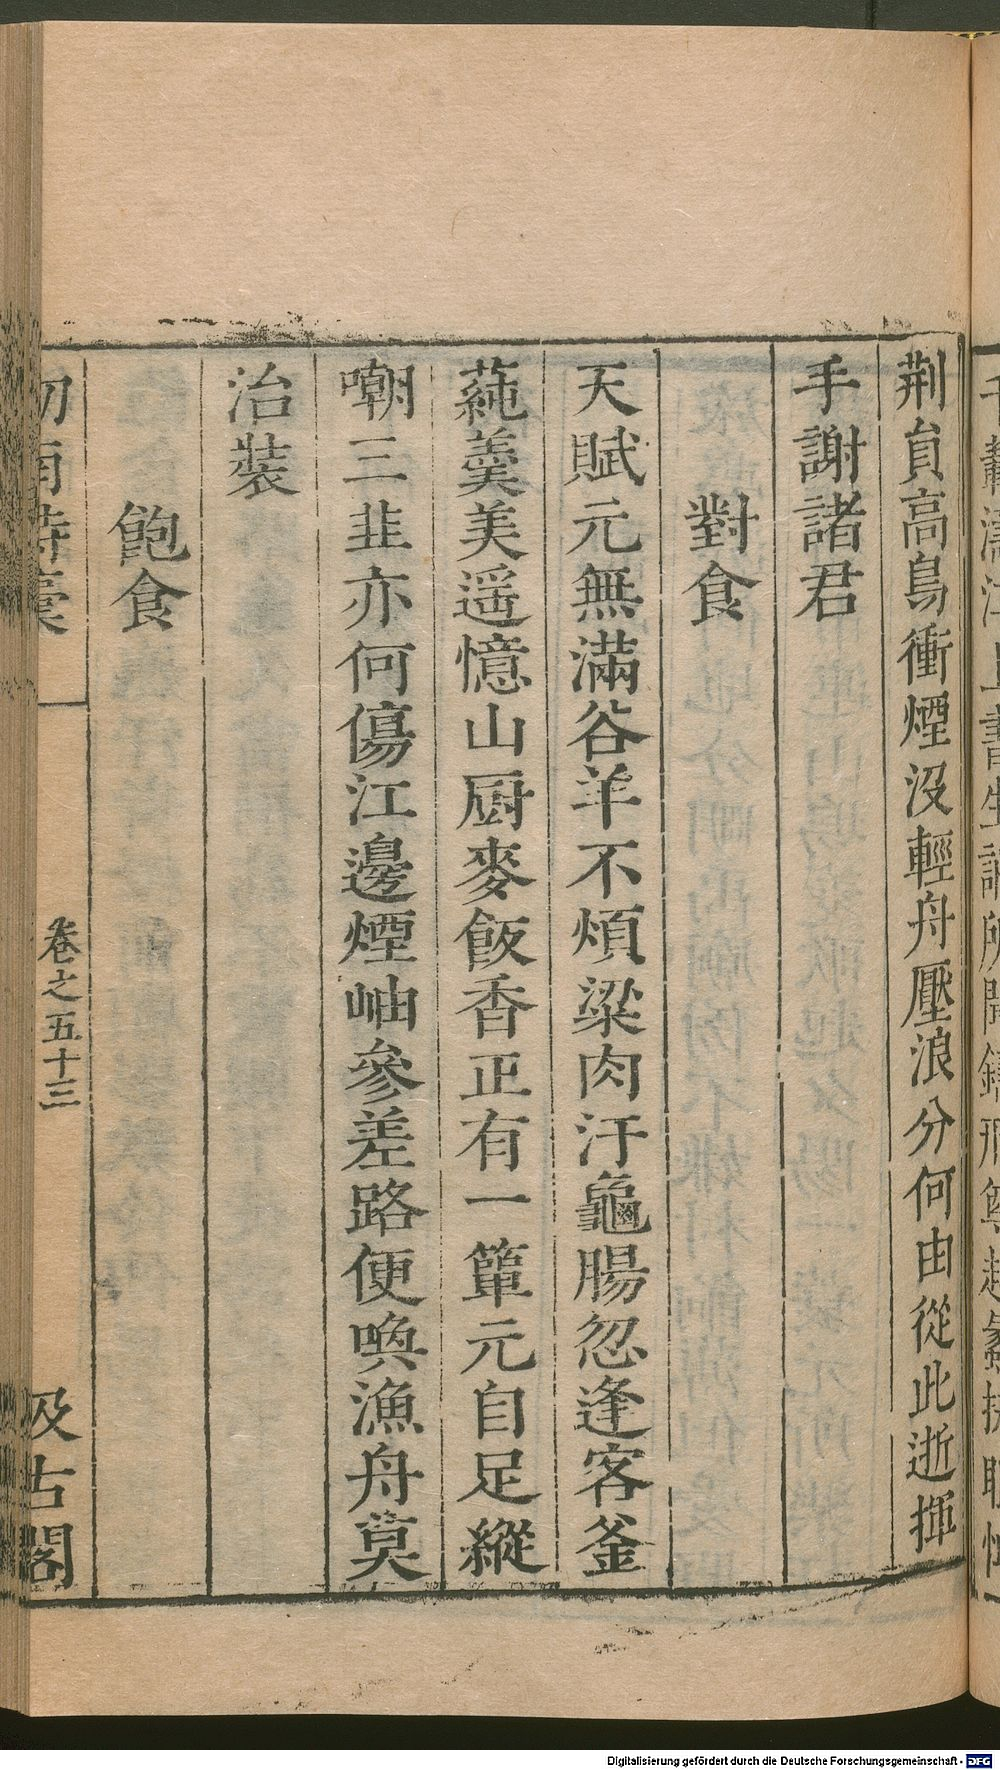 荆負高鳥衝煙沒輕舟壓浪分何由從此逝揮
手謝諸君
對食
天賦元無滿谷羊不煩梁肉汙龜腸忽逢客釜
蓴羹美遥憶山厨麥飯香正有一簞元自足縱
嘲三韭亦何傷江邊煙岫參差路便喚漁舟莫
治裝
飽食
卷之五十三
汲古閣
Digitalisierung gefördert durch die Deutsche Forschungsgemeinschaft - DFG